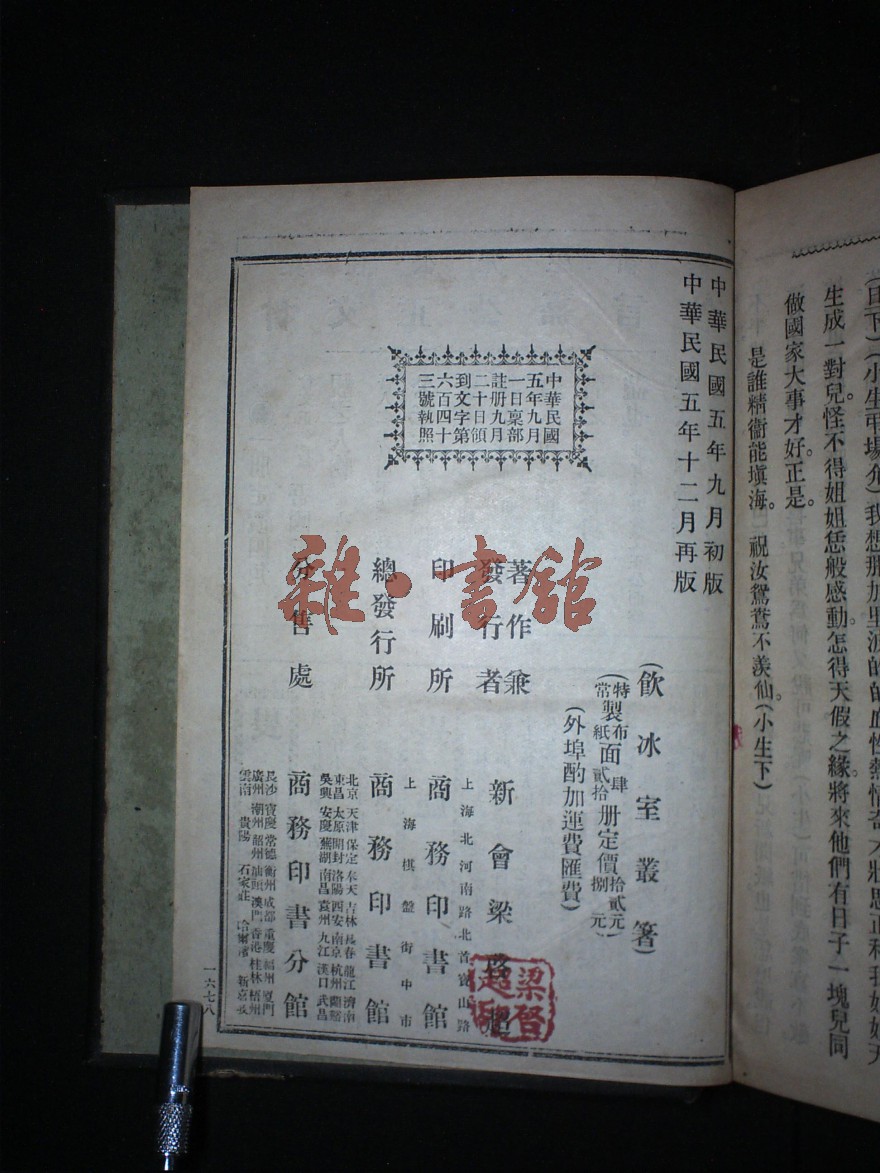 (旦下)(小生弔場介)我想那加里波的的血性熱情奇才壯思正和我姐姐天
生成一對兒。怪不得姐姐恁般感動。怎得天假之緣。將來他們有日子一塊兒同
做國家大事才好。正是。
是誰精衞能填海。祝汝鴛鴦不羨仙。(小生下)
中華民國五年九月初版
中華民國五年十二月再版
中華民國
五年九月
一日稟部
註册九月
二十日領
到文字第
六百四十
三號執照
(飲冰室叢箸)
(特製布面肆册定價拾貳元)
(常製紙面貳拾册定價捌元)
(外埠酌加運費匯費)
著作兼
發行者
新會梁啓超
印刷所
上海北河南路北首寶山路
商務印書館
總發行所
上海棋盤街中市
商務印書館
分售處
北京 天津 保定 奉天 吉林 長春 龍江 濟南
東昌 太原 開封 洛陽 西安 南京 杭州 蘭谿
吳興 安慶 蕪湖 南昌 袁州 九江 漢口 武昌
商務印書分館
長沙 寶慶 常德 衡州 成都 重慶 福州 廈門
廣州 潮州 韶州 汕頭 澳門 香港 桂林 梧州
雲南 貴陽 石家莊 哈爾濱 新嘉坡
一六七八
梁啓
超
雜·書館